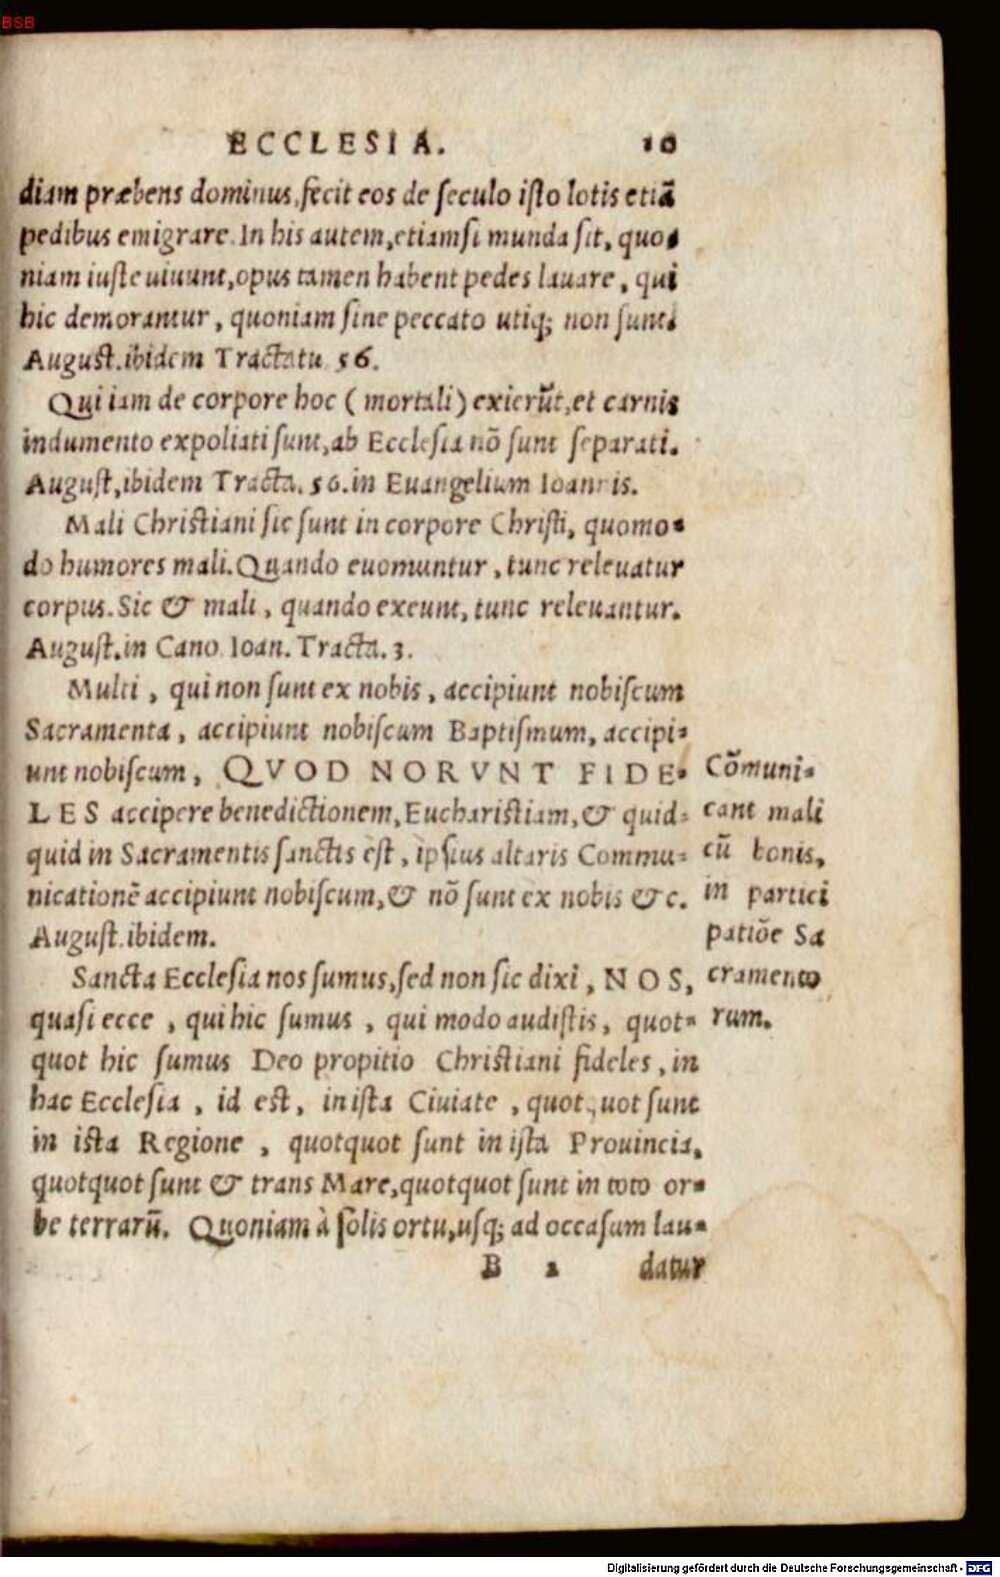 BSB
ECCLESIA. 10
diam præbens dominus, fecit eos de seculo isto lotis etiã
pedibus emigrare. In his autem, etiamsi munda sit, quo-
niam iuste uiuunt, opus tamen habent pedes lauare, qui
hic demorantur, quoniam sine peccato utiq; non sunt.
August. ibidem Tractatu 56.
Qui iam de corpore hoc (mortali) exierũt, et carnis
indumento expoliati sunt, ab Ecclesia nõ sunt separati.
August, ibidem Tracta. 56. in Euangelium Ioannis.
Mali Christiani sic sunt in corpore Christi, quomo-
do humores mali. Quando euomuntur, tunc releuatur
corpus. Sic & mali, quando exeunt, tunc releuantur.
August. in Cano. Ioan. Tracta. 3.
Multi, qui non sunt ex nobis, accipiunt nobiscum
Sacramenta, accipiunt nobiscum Baptismum, accipi-
unt nobiscum, QVOD NORVNT FIDE-
LES accipere benedictionem, Eucharistiam, & quid-
quid in Sacramentis sanctis est, ipsius altaris Commu-
nicationẽ accipiunt nobiscum, & nõ sunt ex nobis &c.
August. ibidem.
Sancta Ecclesia nos sumus, sed non sic dixi, NOS,
quasi ecce, qui hic sumus, qui modo audistis, quot-
quot hic sumus Deo propitio Christiani fideles, in
hac Ecclesia, id est, in ista Ciuiate, quotquot sunt
in ista Regione, quotquot sunt in ista Prouincia,
quotquot sunt & trans Mare, quotquot sunt in toto or-
be terrarũ. Quoniam à solis ortu, usq; ad occasum lau-
B 2 datur
Cõmuni-
cant mali
cũ bonis,
in partici
patiõe Sa
cramento
rum.
Digitalisierung gefördert durch die Deutsche Forschungsgemeinschaft - DFG